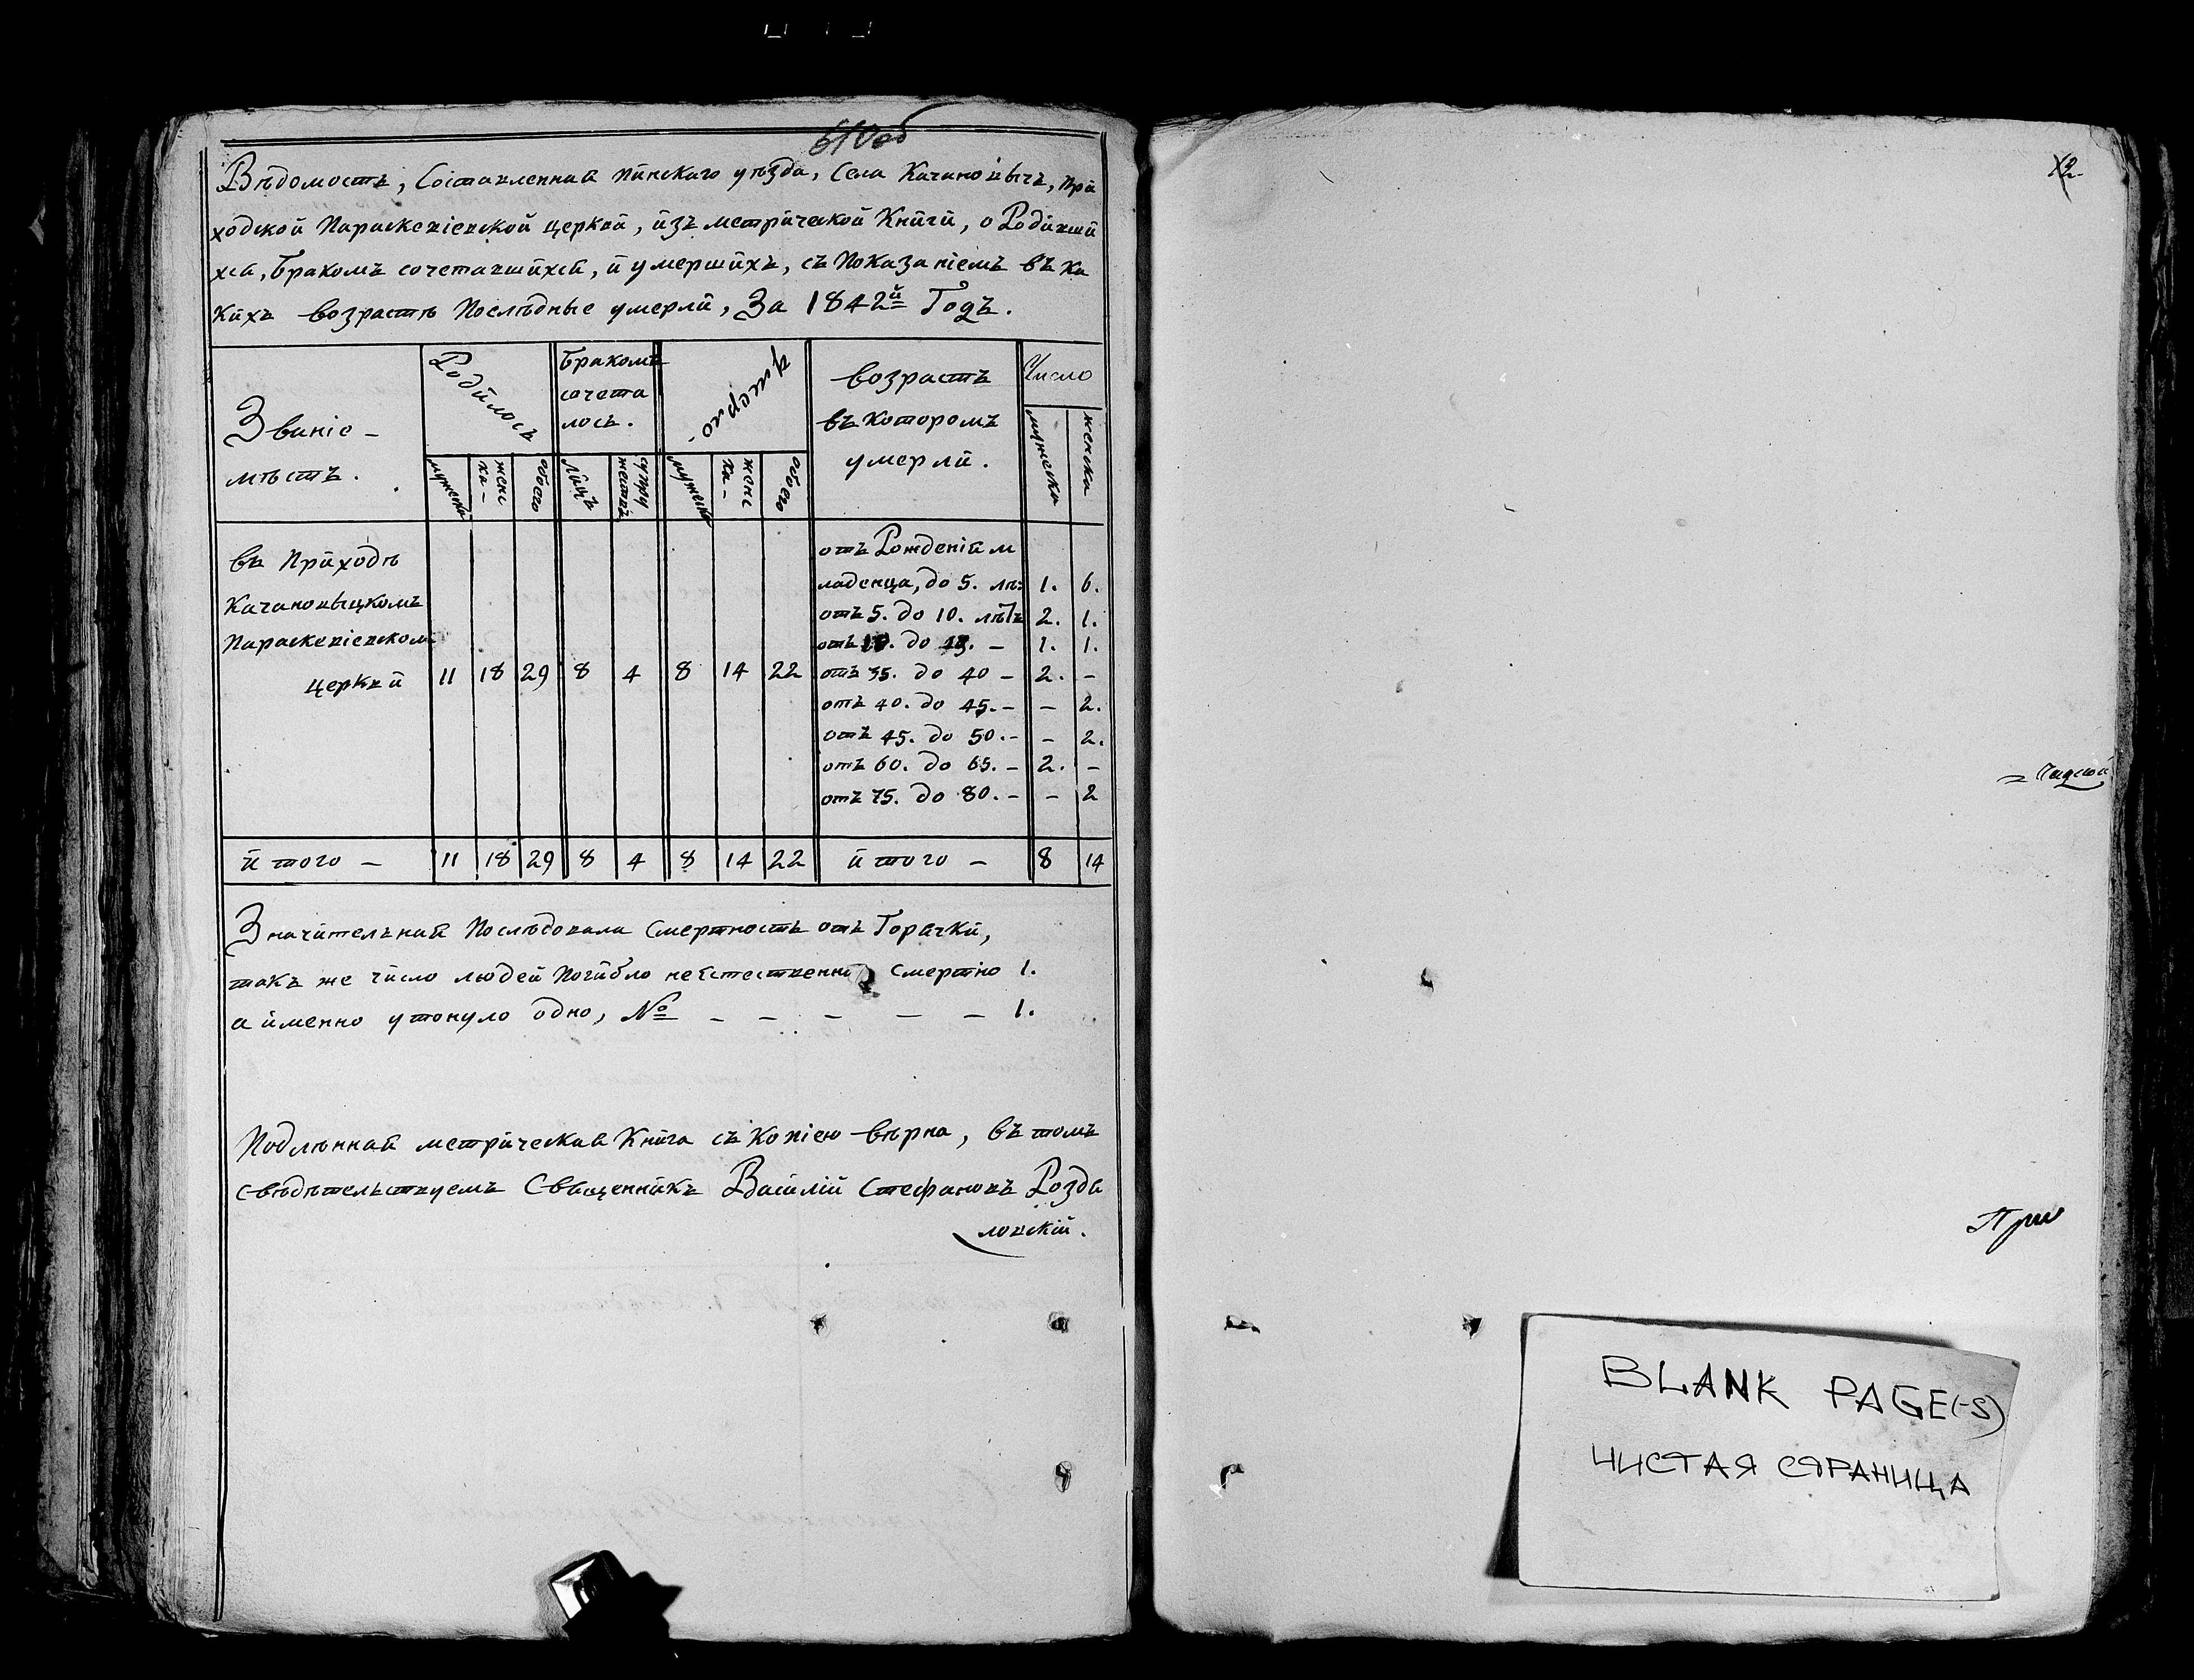 610об
Вѣдомость, Составленная Пинскаго уѣзда, Села Качановычъ, При
ходской Параскевіевской церкви, изъ метрической Книги, о Родивши
хся, бракомъ сочетавшихся, и умершихъ, съ Показаніемъ въ ка
кихъ возрастѣ Послѣдные умерли, За 1842й Годъ.
Званіе –
мѣстъ.
Родилось
Бракомъ
сочета
лось.
Умерло.
возрастъ
въ которомъ
умерли.
Число
мужеска
женс
ка –
обоего
лицъ
супру
жествъ
мужеска
женс
ка –
обоего
мужеска
женска
въ Приходѣ
Качановыцкомъ
Параскевіевском
церкви 11 18 29 8 4 8 14 22
отъ Рожденія м
ладенца, до 5. лѣ: 1. 6.
отъ 5. до 10. лѣтъ 2. 1.
отъ до – 1. 1.
отъ 35. до 40 – 2. –
отъ 40. до 45. – – 2.
отъ 45. до 50. – – 2.
отъ 60. до 65. – 2. –
отъ 75. до 80. – – 2
и того – 11 18 29 8 4 8 14 22 и того – 8 14
Значительная Послѣдовала Смертность отъ Горачки,
такъ же число людей Погибло неестественно Смертію 1.
а именно утонуло одно, № – – – – – 1.
Подлѣнная метрическая Книга съ Копіею вѣрна, въ томъ
свѣдѣтельствуемъ Священникъ Василій Стефановъ Розда
ловскій.
2.
При
BLANK PAGE(-S)
ЧИСТАЯ СТРАНИЦА